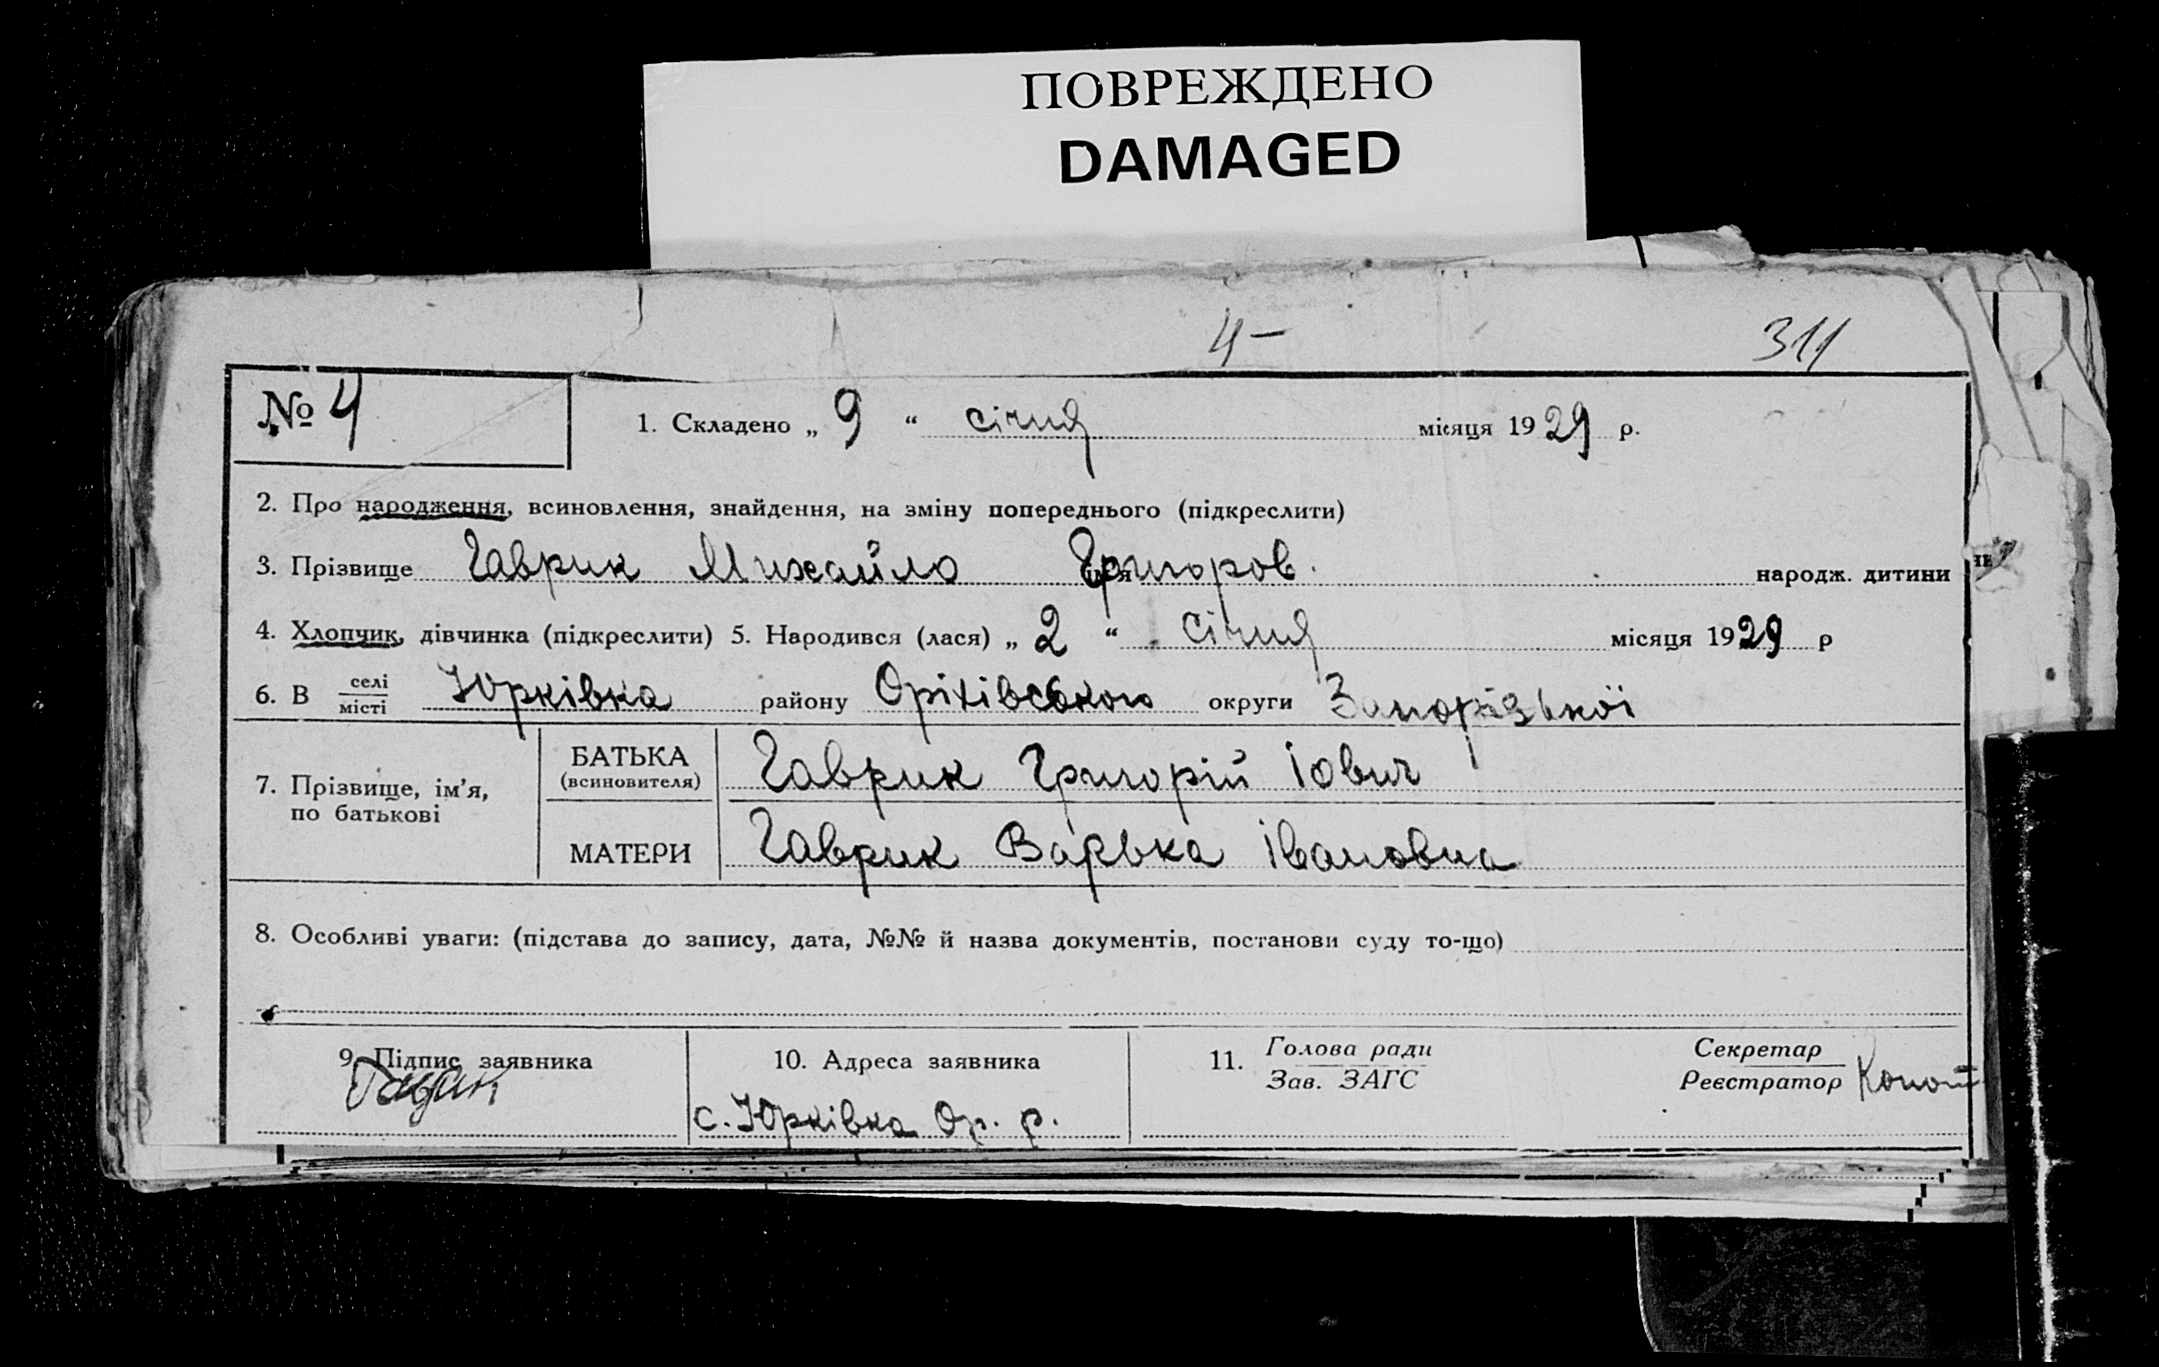 ПОВРЕЖДЕНО
DAMAGED
4- 311
№ 4
1. Складено „ 9 “ січня місяця 1929 р.
2. Про народження, всиновлення, знайдення, на зміну попереднього (підкреслити)
3. Прізвище Гаврик Михайло ім'я Григоров. народж. дитини
4. Хлопчик, дівчинка (підкреслити) 5. Народився (лася) „ 2 “ січня місяця 1929 р
6. В селі місті Юрківка району Оріхівського округи Запорізької
7. Прізвище, ім'я, по батькові
БАТЬКА (всиновителя) Гаврик Григорій Іович
МАТЕРИ Гаврик Варька Івановна
8. Особливі уваги: (підстава до запису, дата, №№ й назва документів, постанови суду то-що)
9. Підпис заявника
10. Адреса заявника
с. Юрківка Ор. р.
11. Голова ради
Зав. ЗАГС
Секретар
Реєстратор